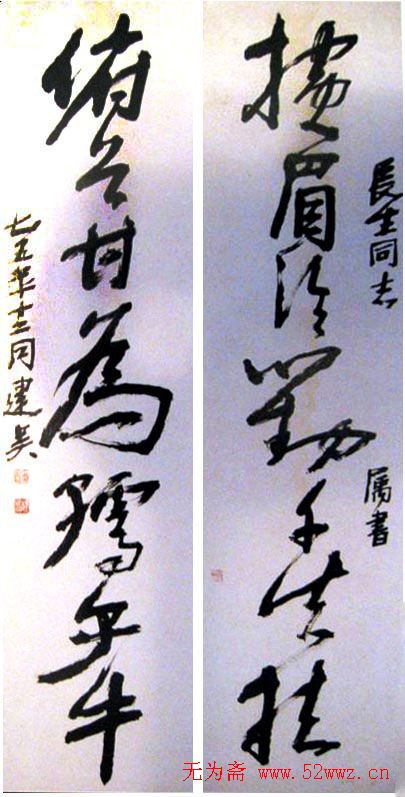 長生同志
属書
横眉冷對千夫指
俯首甘為孺子牛
七五年十二月建吴
无为斋 www.52wwz.cn